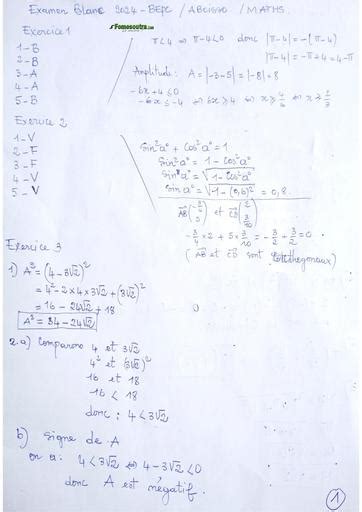 Examen Blanc 2024 - BEPC / ABOISSO / MATHS.
Fomesoutra.com
Exercice 1
1 - B
2 - B
3 - A
4 - A
5 - B
π<4 ⇔ π-4<0 donc |π-4| = -(π-4)
|π-4| = -π+4 = 4-π
Amplitude : A = |-3-5| = |-8| = 8
-6x+4≤0
-6x ≤ -4 ⇔ 6x ≥ 4 ⇔ x ≥ 4/6 ⇔ x ≥ 2/3
Exercice 2
1 - V
2 - F
3 - F
4 - V
5 - V
Sin²a° + Cos²a° = 1
Sin²a° = 1 - Cos²a°
Sin a° = √1 - Cos²a°
Sin a° = √1 - (0,6)² = 0,8.
AB(-3/4 5) et CD(2 3/10)
-3/4 × 2 + 5 × 3/10 = -3/2 + 3/2 = 0
(AB et CD sont Orthogonaux)
Exercice 3
1) A² = (4 - 3√2)²
= 4² - 2×4×3√2 + (3√2)²
= 16 - 24√2 + 18
A² = 34 - 24√2
2. a) Comparons 4 et 3√2
4² et (3√2)²
16 et 18
16 < 18
donc : 4 < 3√2
b) Signe de A
on a : 4 < 3√2 ⇔ 4 - 3√2 < 0
donc A est négatif.
1